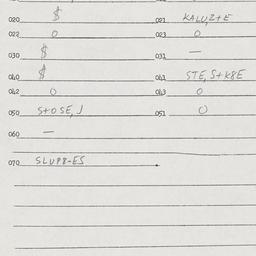 020 $ 021 KALU,Z+E
022 0 023 0
030 $ 031 —
040 $ 041 STE,S+K8E
042 0 043 0
050 S+OSE,J 051 0
060 —
070 SLUP8-ES